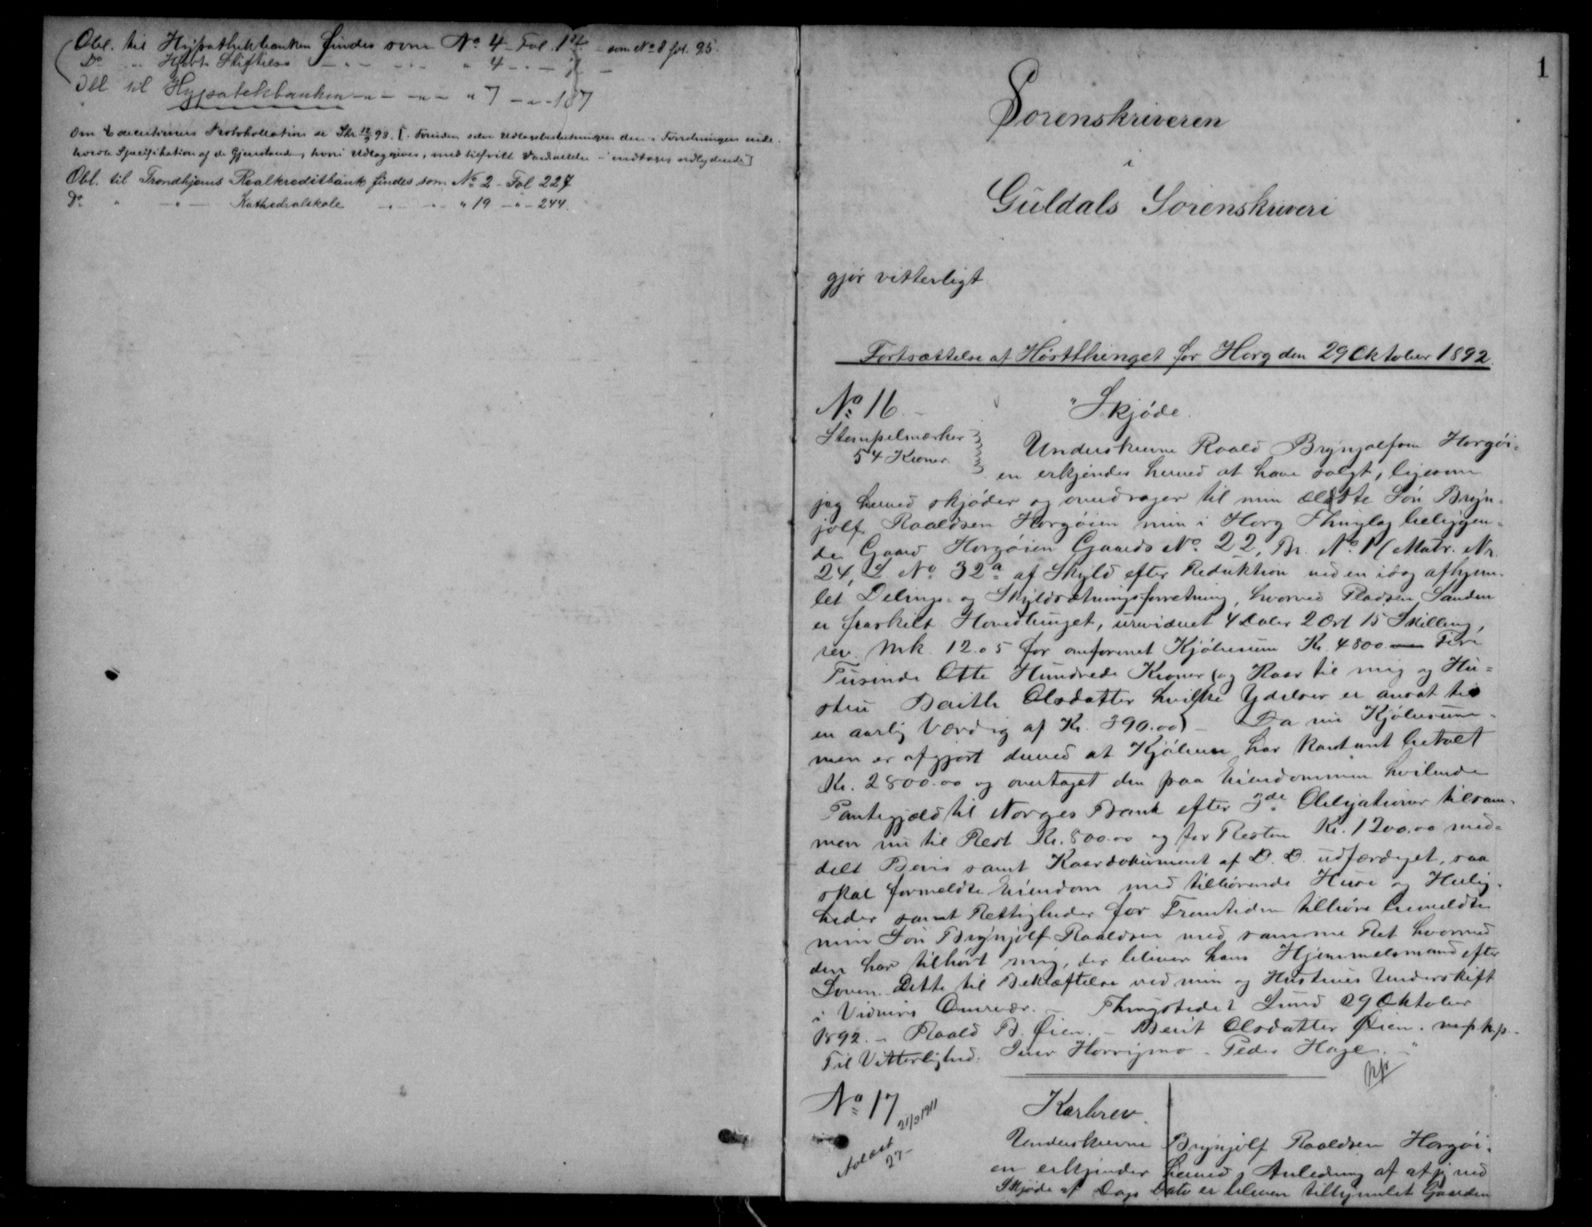 Obl. til Hypothekbanken findes som No 4 Fol. 1 som No 8 fol. 95.
Do " Stiftelse " 4
Obl til Hypotekbanken " 7 " 187
Om Executioners Protokollation se Skr. 93.
Specifikation af de Gjenstande, hvori Udlæg gives, indtages ordlydende]
Obl. til Trondhjems Realkreditbank findes som No 2 - Fol 227
Do " " Kathedralskole " " " 19 - " - 244.
1
Sorenskriveren
i
Guldals Sorenskriveri
gjør vitterligt
Fortsættelse af Høstthinget for Horg den 29 Oktober 1892.
No 16
"Skjøde.
Stempelmærker
54 Kroner
Underskrevne Roald Brynjolfsen Horgøi-
en erkjender herved at have solgt, ligesom
jeg herved skjøder og overdrager til min ældste Søn Bryn-
jolf Roaldsen Horgøien min i Horg Thinglag beliggen-
de Gaard Horgøien Gaards No 22, Br. No 1 (Matr. Nr.
24, L No 32a af Skyld efter Reduktion ved en idag afhjem-
let Delings- og Skyldsætningsforretning, hvorved Pladsen Sanden
er fraskilt Hovedbruget, urevideret 4 Daler 2 Ort 15 Skilling,
rev. Mrk. 12.05 for omforenet Kjøbesum Kr. 4800 Fire
Tusinde Otte Hundrede Kroner (og Kaar til mig og Hu-
stru Berith Olsdatter hvilke Ydelser er ansat til
en aarlig Værdi af Kr. 390.00) - Da nu Kjøbesum-
men er afgjort derved at Kjøberen har kontant betalt
Kr. 2800.00 og overtaget den paa Eiendommen hvilende
Pantegjæld til Norges Bank efter 3de Obligationer tilsam-
men nu til Rest Kr. 800.00 og for Resten Kr. 1200.00 med-
delt Bevis samt Kaardokument af D. D. udfærdiget, saa
skal formeldte Eiendom med tilhørende Huse og Herlig-
heder samt Rettigheder for Fremtiden tilhøre bemeldte
min Søn Brynjolf Roaldsen med samme Ret hvormed
den har tilhørt mig, der bliver hans Hjemmelsmand efter
Loven. Dette til Bekræftelse ved min og Hustrues Underskrift
i Vidners Overvær. - Thingstedet Lund 29 Oktober
1892. - Roald B. Øien. - Berit Olsdatter Øien. m p k p.
Til Vitterlighed: Iver Horrigmo - Peder Hage. "
No 17
Kaarbrev.
Aflæst 21/3 1911
27-
Underskrevne Brynjolf Roaldsen Horgøi-
en erkjender herved i Anledning af at jeg ved
Skjøde af Dags Dato er bleven tilhjemlet Gaarden